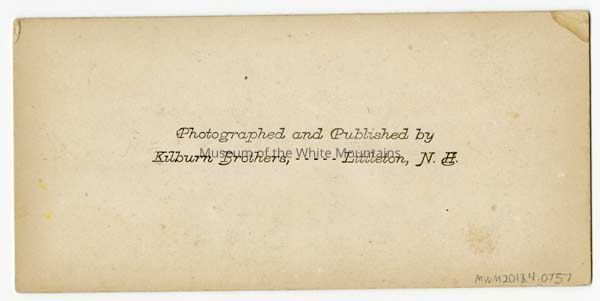 Photographed and Published by
Museum of the White Mountains
Kilburn Brothers, ----- Littleton, N. H.
MWM2013.4.0757